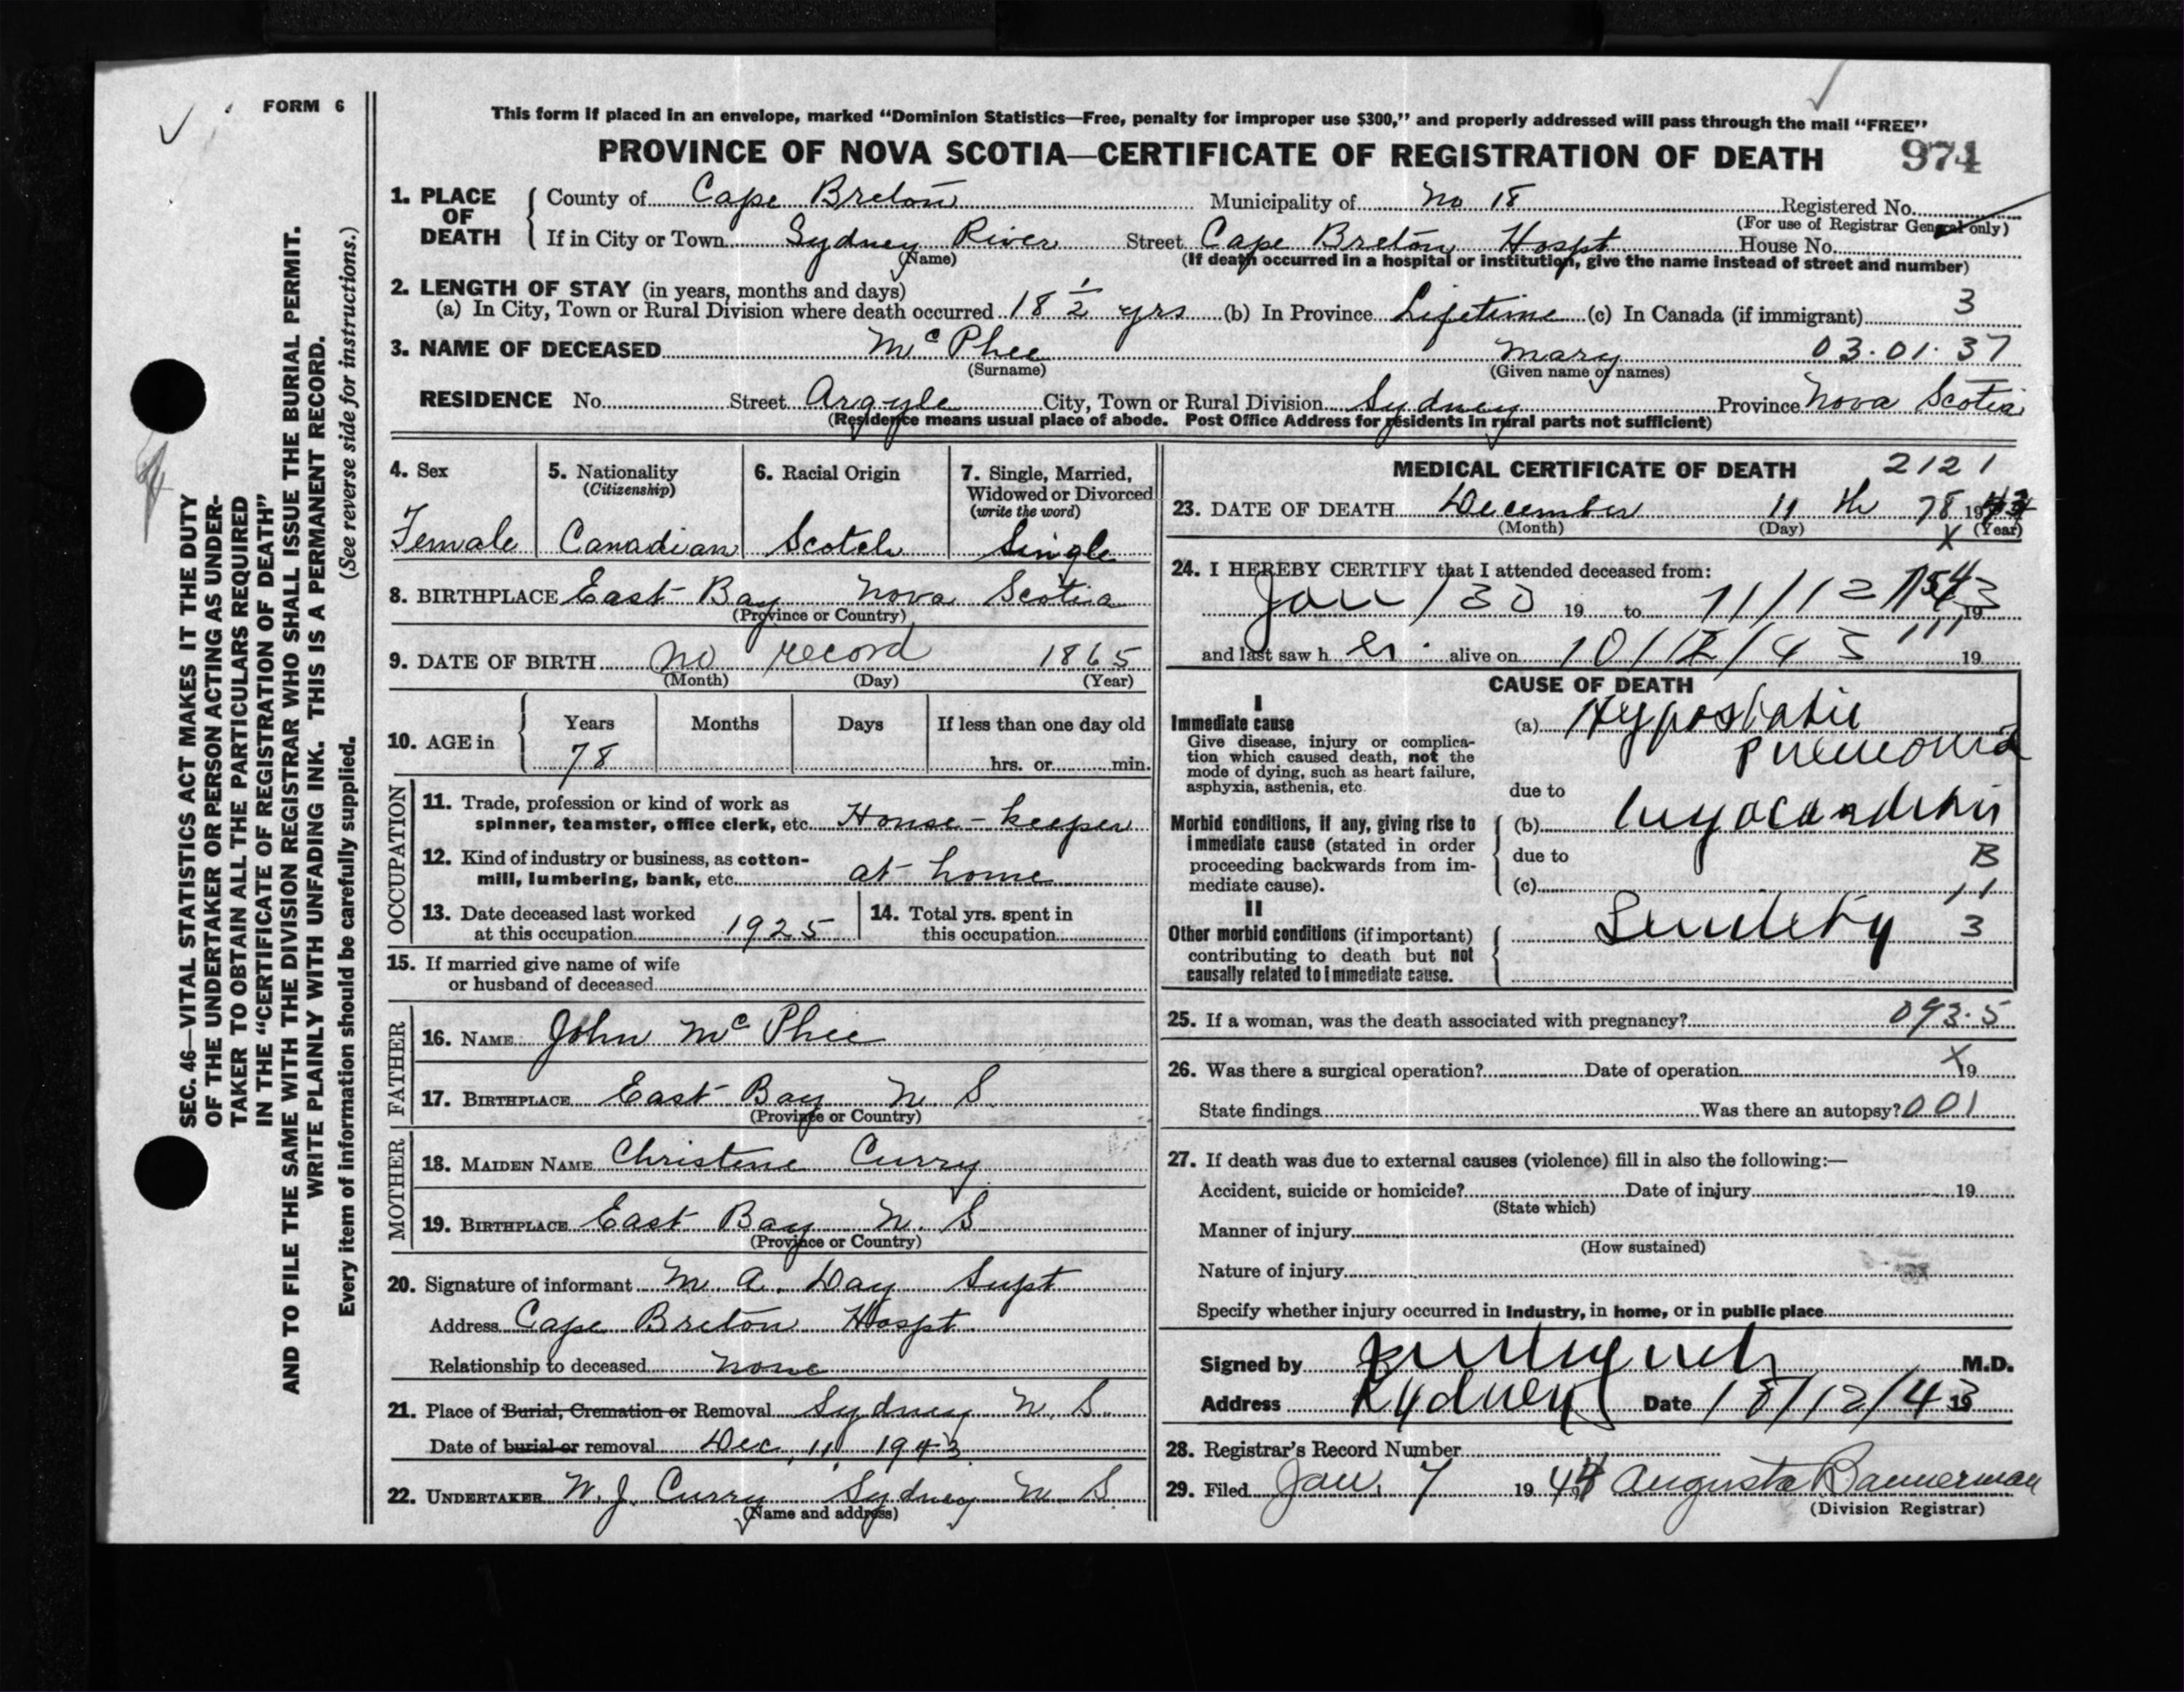 FORM 6
This form if placed in an envelope, marked "Dominion Statistics—Free, penalty for improper use $300," and properly addressed will pass through the mail "FREE"
PROVINCE OF NOVA SCOTIA—CERTIFICATE OF REGISTRATION OF DEATH 974
1. PLACE OF DEATH
County of Cape Breton Municipality of No 18 Registered No.
(For use of Registrar General only)
If in City or Town Sydney River Street Cape Breton Hospt House No.
(Name) (If death occurred in a hospital or institution, give the name instead of street and number)
2. LENGTH OF STAY (in years, months and days)
(a) In City, Town or Rural Division where death occurred 18 1/2 yrs (b) In Province Lifetime (c) In Canada (if immigrant) 3
3. NAME OF DECEASED McPhee Mary 03.01.37
(Surname) (Given name or names)
RESIDENCE No. Street Argyle City, Town or Rural Division Sydney Province Nova Scotia
(Residence means usual place of abode. Post Office Address for residents in rural parts not sufficient)
4. Sex
Female
5. Nationality
(Citizenship)
Canadian
6. Racial Origin
Scotch
7. Single, Married,
Widowed or Divorced
(write the word)
Single
8. BIRTHPLACE East Bay Nova Scotia
(Province or Country)
9. DATE OF BIRTH no record 1865
(Month) (Day) (Year)
10. AGE in
Years Months Days If less than one day old
78 hrs. or min.
OCCUPATION
11. Trade, profession or kind of work as
spinner, teamster, office clerk, etc. House-keeper
12. Kind of industry or business, as cotton-
mill, lumbering, bank, etc. at home
13. Date deceased last worked
at this occupation 1925
14. Total yrs. spent in
this occupation
15. If married give name of wife
or husband of deceased
FATHER
16. NAME John McPhee
17. BIRTHPLACE East Bay N. S.
(Province or Country)
MOTHER
18. MAIDEN NAME Christine Curry
19. BIRTHPLACE East Bay N. S
(Province or Country)
20. Signature of informant M. A. Day Supt
Address Cape Breton Hospt
Relationship to deceased none
21. Place of Burial, Cremation or Removal Sydney N. S.
Date of burial or removal Dec. 11, 1943
22. UNDERTAKER W. J. Curry Sydney N. S.
(Name and address)
MEDICAL CERTIFICATE OF DEATH 2121
23. DATE OF DEATH December 11 th 78 1943
(Month) (Day) X (Year)
24. I HEREBY CERTIFY that I attended deceased from:
19 to 11/12 19
and last saw her alive on 10/12/43 19
CAUSE OF DEATH
I
Immediate cause
Give disease, injury or complica-
tion which caused death, not the
mode of dying, such as heart failure,
asphyxia, asthenia, etc.
(a) Hypostatic
pneumonia
due to
Morbid conditions, if any, giving rise to
immediate cause (stated in order
proceeding backwards from im-
mediate cause).
(b) Myocarditis
due to B
(c) 11
II
Other morbid conditions (if important)
contributing to death but not
causally related to immediate cause.
Senility 3
25. If a woman, was the death associated with pregnancy? 093.5
26. Was there a surgical operation? Date of operation X 19
State findings Was there an autopsy? 001
27. If death was due to external causes (violence) fill in also the following:—
Accident, suicide or homicide? Date of injury 19
(State which)
Manner of injury
(How sustained)
Nature of injury
Specify whether injury occurred in industry, in home, or in public place
Signed by M.D.
Address Sydney Date 18/12/43 19
28. Registrar's Record Number
29. Filed Jan. 7 1944 Augusta Bannerman
(Division Registrar)
SEC. 46—VITAL STATISTICS ACT MAKES IT THE DUTY
OF THE UNDERTAKER OR PERSON ACTING AS UNDER-
TAKER TO OBTAIN ALL THE PARTICULARS REQUIRED
IN THE "CERTIFICATE OF REGISTRATION OF DEATH"
AND TO FILE THE SAME WITH THE DIVISION REGISTRAR WHO SHALL ISSUE THE BURIAL PERMIT.
WRITE PLAINLY WITH UNFADING INK. THIS IS A PERMANENT RECORD.
Every item of information should be carefully supplied. (See reverse side for instructions.)